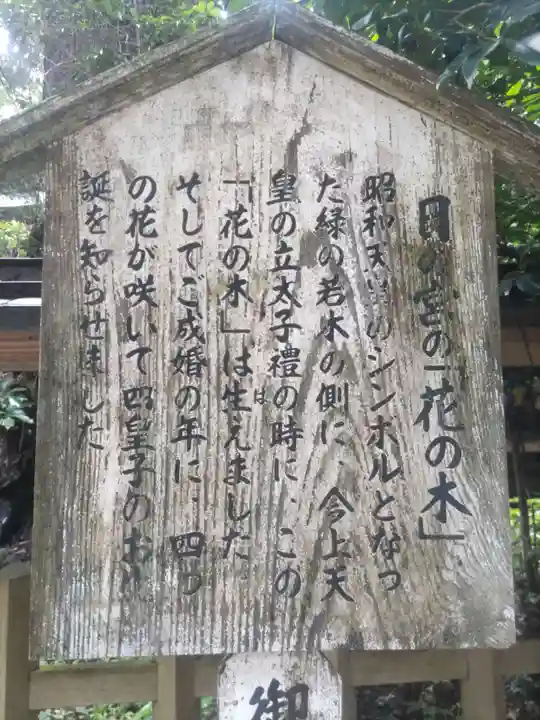 日の宮の「花の木」
昭和天皇のシンホルとなっ
た緑の若木の側に、今上天
皇の立太子禮の時に、この
「花の木」は生えました。
は
そしてご成婚の年に、四つ
の花が咲いて四皇子のお
誕を知らせました
御